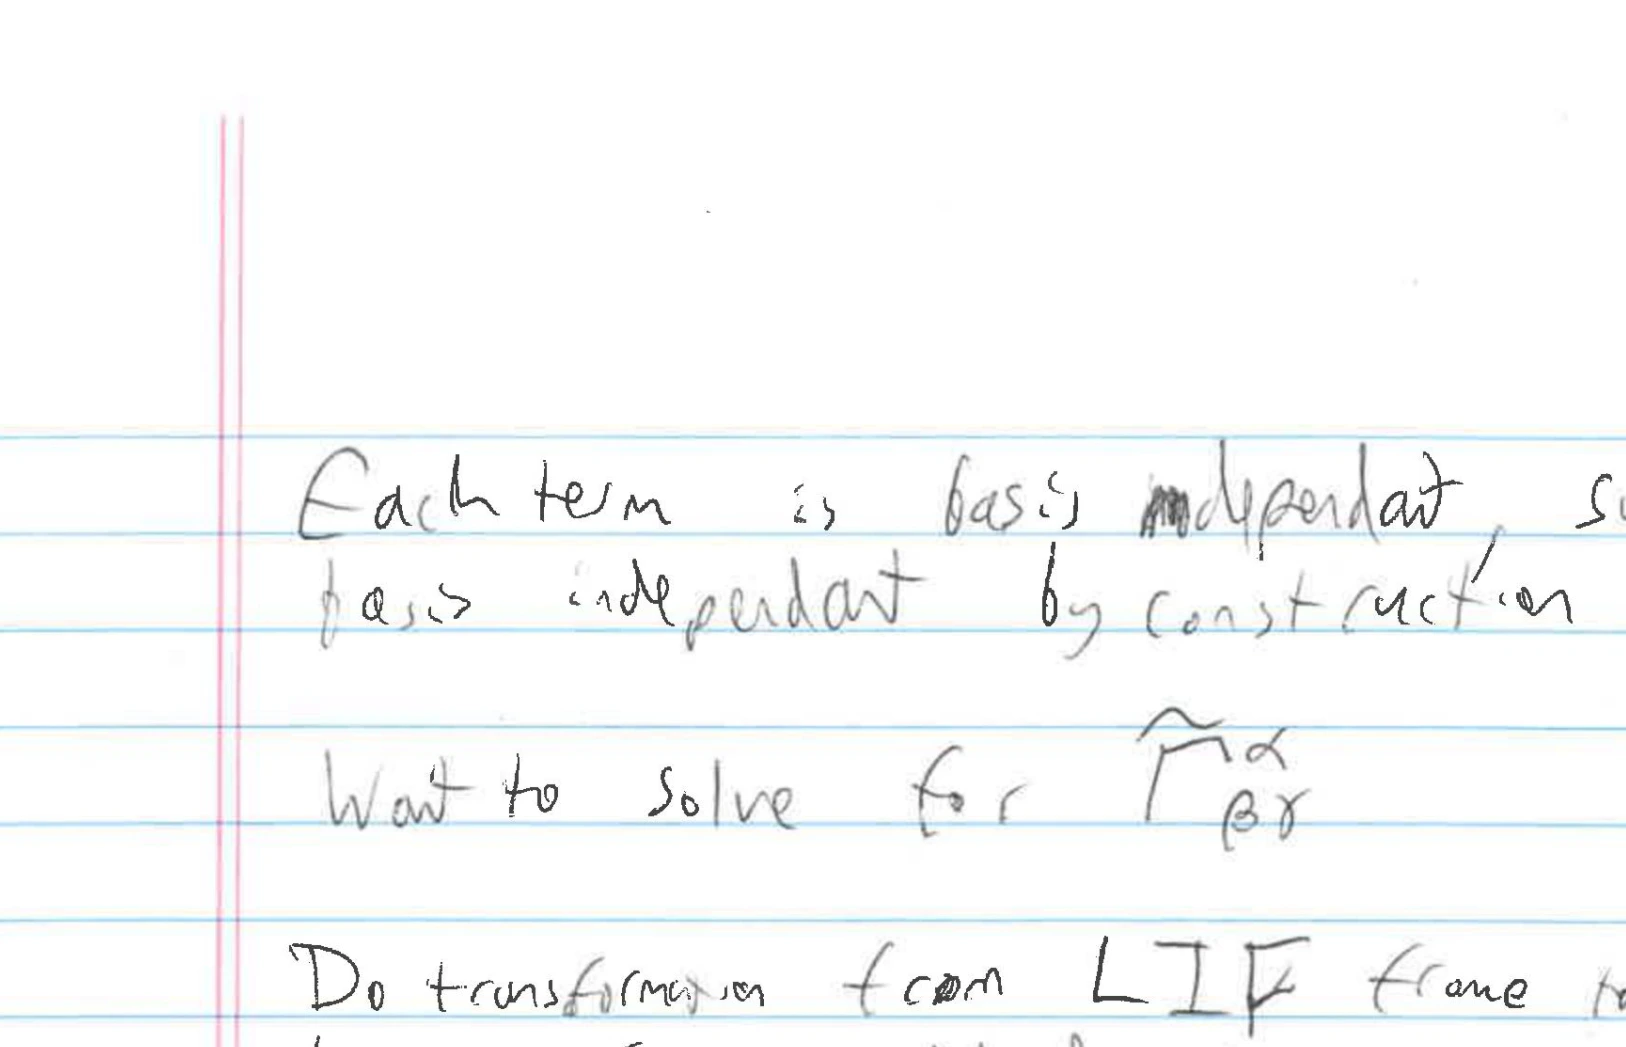 Each term is basis independant,
basis independant by construction
Want to solve for Γ̃^α_βγ
Do transformation from LIF frame